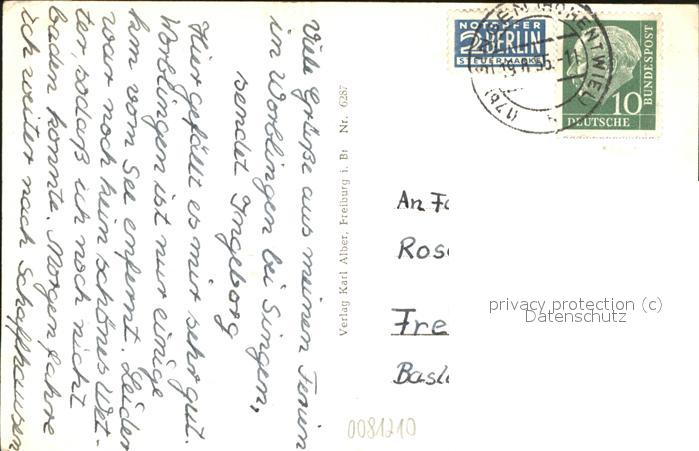 Viele Grüße aus meinen Ferien
in Worblingen bei Singen,
sendet Ingeborg
Hier gefällt es mir sehr gut.
Worblingen ist nur einige
km vom See enfernt. Leider
war noch kein schönes Wet-
ter, sodaß ich noch nicht
baden konnte. Morgen fahre
ich weiter nach Schaffhausen
Verlag Karl Alber, Freiburg i. Br. Nr. 6287
NOTOPFER
2 BERLIN
STEUERMARKE
(HOHENTWIEL)
10
DEUTSCHE
BUNDESPOST
An Fa
Rose
Fre
Basl
privacy protection (c)
Datenschutz
0081210